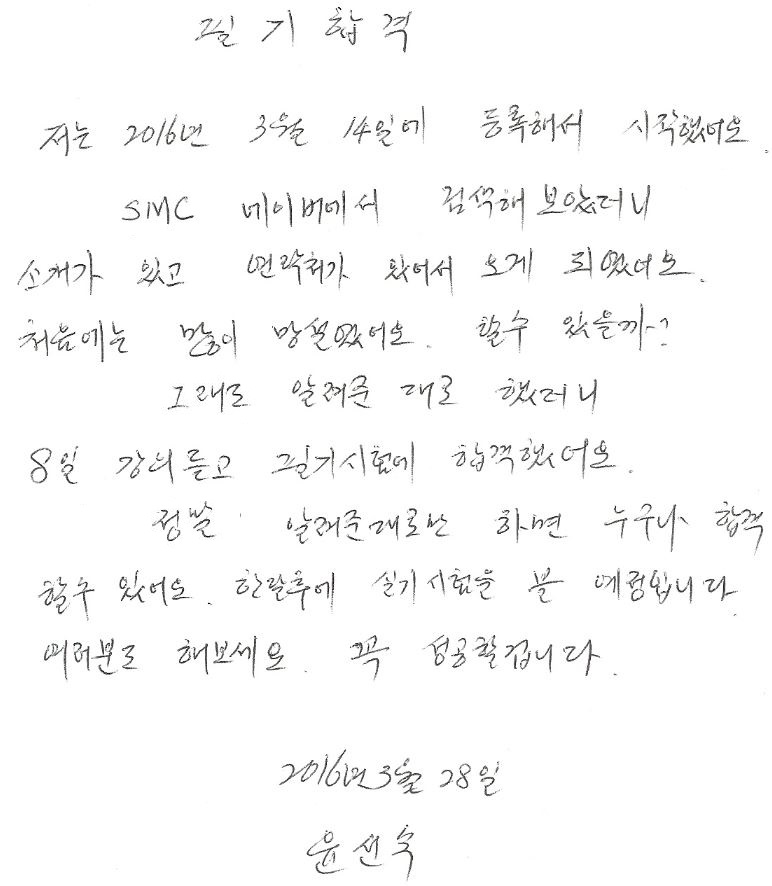 필기합격
저는 2016년 3월 14일에 등록해서 시작했어요.
SMC 네이버에서 검색해 보았더니
소개가 있고 연락처가 있어서 오게 되었어요.
처음에는 많이 망설였어요. 할수 있을까?
그래도 알려준 대로 했더니
8일 강의듣고 필기시험에 합격했어요.
정말 알려준대로만 하면 누구나 합격
할수 있어요. 한달후에 실기시험을 볼 예정입니다.
여러분도 해보세요. 꼭 성공할겁니다.
2016년 3월 28일
윤선숙